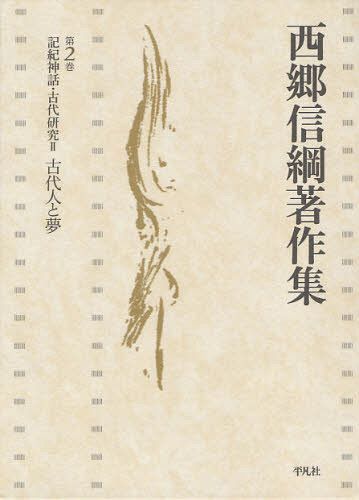 西郷信綱著作集
第2巻
記紀神話・古代研究II 古代人と夢
平凡社